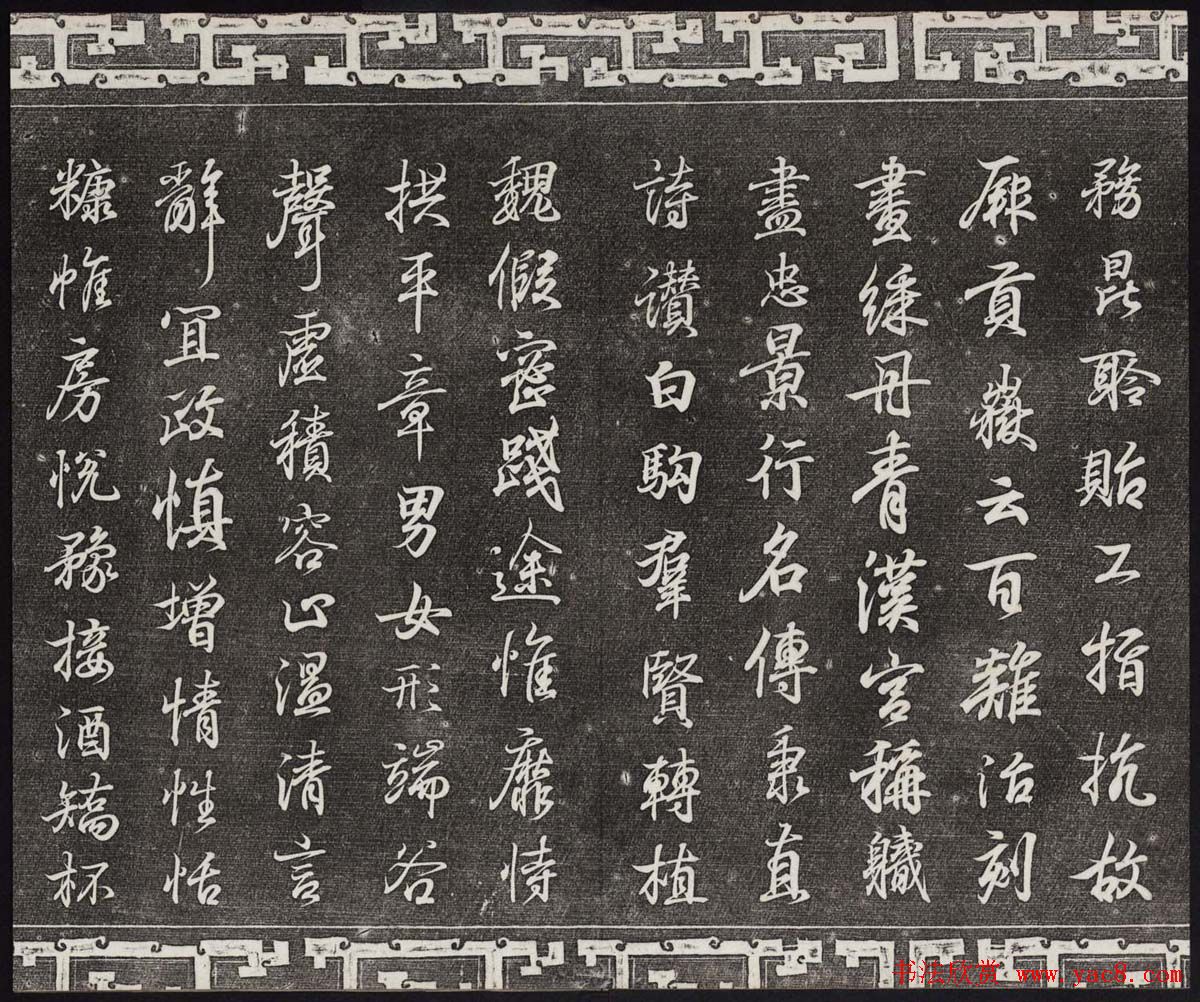 務昆聆貽工指抗故
厥貢嶽云百治刻
畫綵丹青漢宮稱軄
盡忠景行名傳秉直
詩讚白駒羣賢轉植
魏假密踐途惟靡恃
拱平章男女形端谷
聲虛積容止溫清言
辭宜政慎增情性恬
糠帷房悅豫接酒矯杯
书法欣赏 www.yac8.com